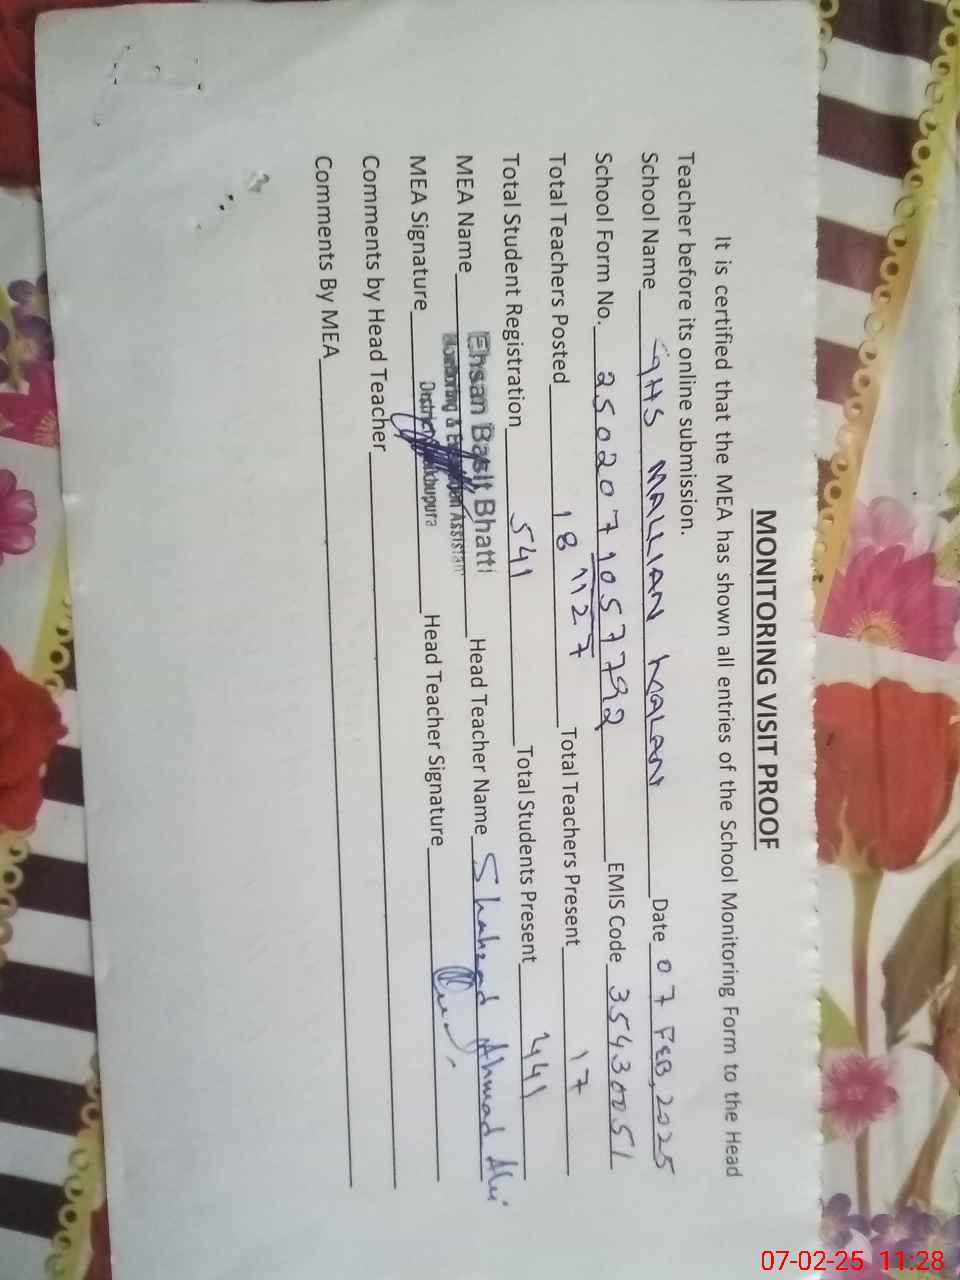 MONITORING VISIT PROOF
It is certified that the MEA has shown all entries of the School Monitoring Form to the Head
Teacher before its online submission.
School Name GHS MALLIAN KALAN Date 07 FEB, 2025
School Form No. 2502071057792 EMIS Code 35430051
1127
Total Teachers Posted 18 Total Teachers Present 17
Total Student Registration 541 Total Students Present 441
MEA Name Ehsan Basit Bhatti Head Teacher Name Shahzad Ahmad Ali
Monitoring & Assistant
MEA Signature District Head Teacher Signature
Comments by Head Teacher
Comments By MEA
07-02-25 11:28